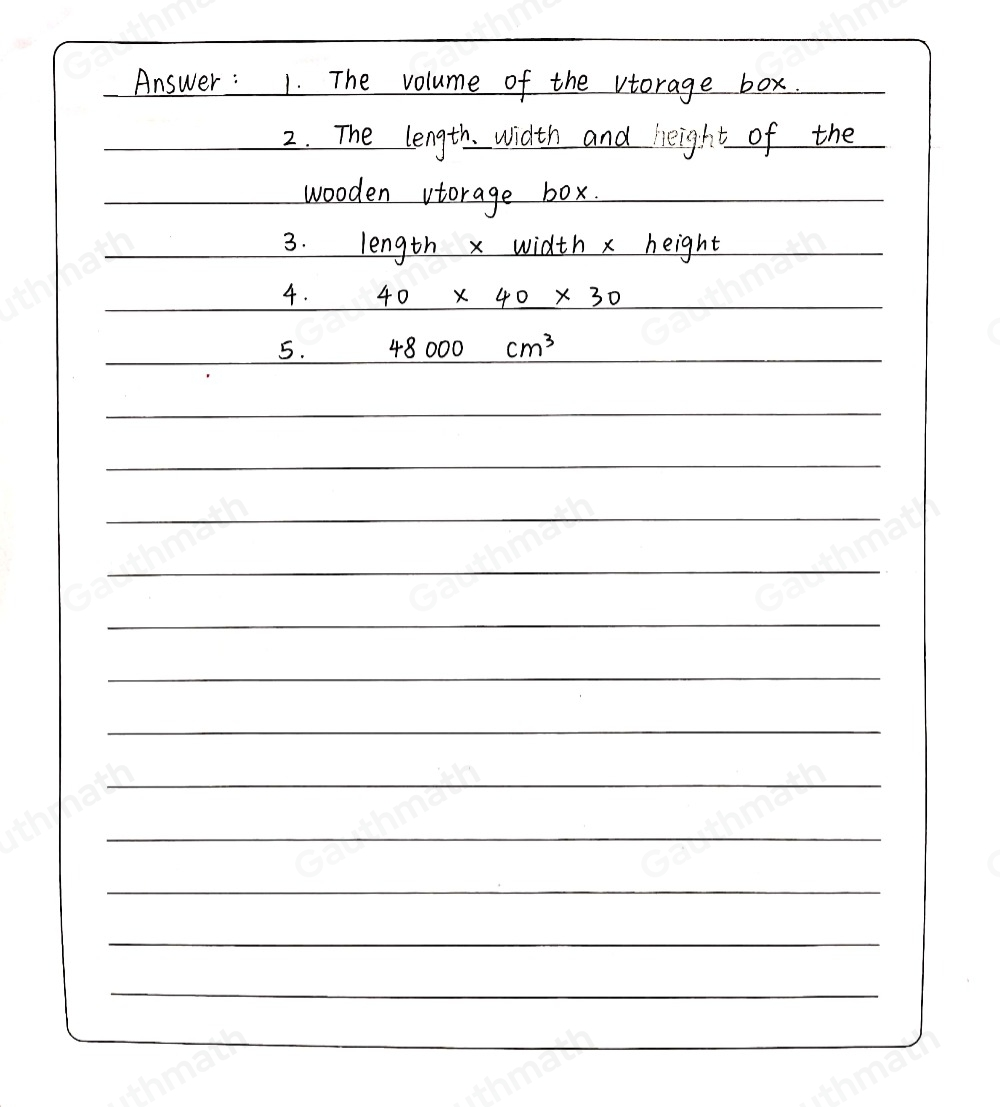 Answer: 1. The volume of the vtorage box.
2. The length、width and height of the
wooden vtorage box.
3. length × width × height
4. 40 × 40 × 30
5. 48 000 cm³
Gauthmath